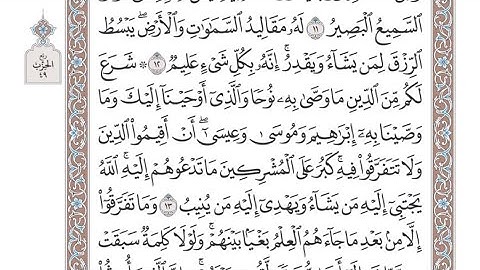 السَّمِيعُ ٱلْبَصِيرُ ١١ لَهُۥ مَقَالِيدُ ٱلسَّمَٰوَٰتِ وَٱلْأَرْضِۖ يَبْسُطُ
ٱلرِّزْقَ لِمَن يَشَآءُ وَيَقْدِرُۚ إِنَّهُۥ بِكُلِّ شَىْءٍ عَلِيمٌ ١٢ ۞ شَرَعَ
لَكُم مِّنَ ٱلدِّينِ مَا وَصَّىٰ بِهِۦ نُوحًا وَٱلَّذِىٓ أَوْحَيْنَآ إِلَيْكَ وَمَا
وَصَّيْنَا بِهِۦٓ إِبْرَٰهِيمَ وَمُوسَىٰ وَعِيسَىٰٓۖ أَنْ أَقِيمُوا۟ ٱلدِّينَ
وَلَا تَتَفَرَّقُوا۟ فِيهِۚ كَبُرَ عَلَى ٱلْمُشْرِكِينَ مَا تَدْعُوهُمْ إِلَيْهِۚ ٱللَّهُ
يَجْتَبِىٓ إِلَيْهِ مَن يَشَآءُ وَيَهْدِىٓ إِلَيْهِ مَن يُنِيبُ ١٣ وَمَا تَفَرَّقُوٓا۟
إِلَّا مِنۢ بَعْدِ مَا جَآءَهُمُ ٱلْعِلْمُ بَغْيًۢا بَيْنَهُمْۚ وَلَوْلَا كَلِمَةٌ سَبَقَتْ
ربع
الحزب
٤٩